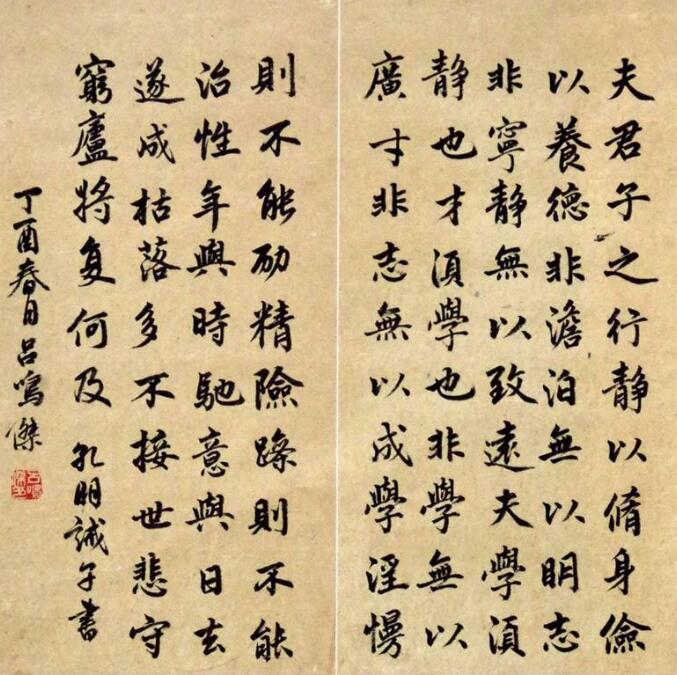 夫君子之行静以脩身儉
以養德非澹泊無以明志
非寧静無以致遠夫學須
静也才須學也非學無以
廣才非志無以成學淫慢
則不能励精險躁則不能
治性年與時馳意與日去
遂成枯落多不接世悲守
窮廬將复何及 孔明誡子書
丁酉春日呂鳴傑